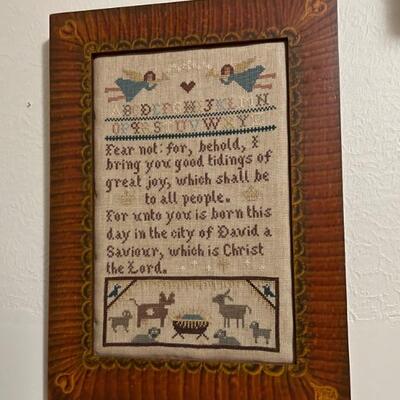 ABCDEFGHIJKLMN
OPQRSTUVWXYZ
Fear not: for, behold, I
bring you good tidings of
great joy, which shall be
to all people.
For unto you is born this
day in the city of David a
Saviour, which is Christ
the Lord.